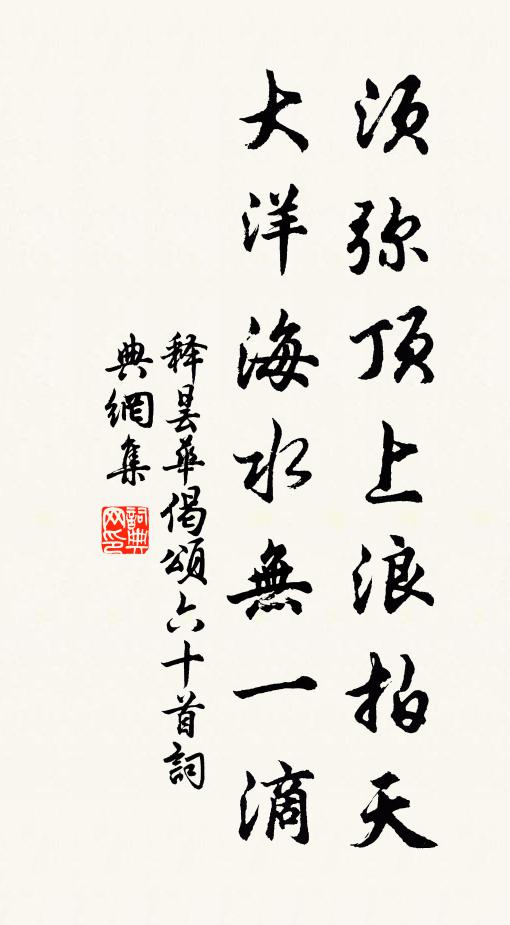 须弥顶上浪拍天
大洋海水無一滴
释昙華偈頌六十首詞
典網集
詞典网印